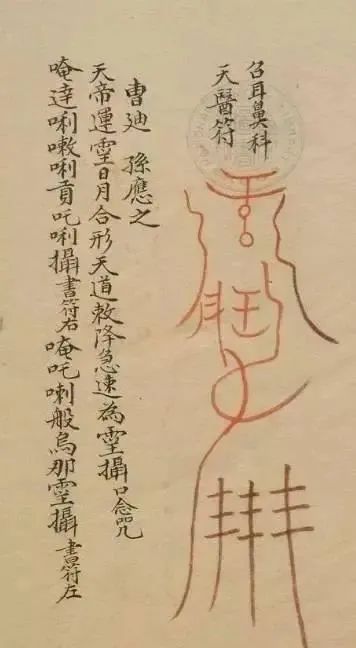 召耳鼻科
天醫符
曹迪 孫應之
天帝運靈日月合形天道敕降急速為靈攝口念咒
唵達唎嗷唎貢吒唎攝書符右唵吒喇般烏那靈攝書符左